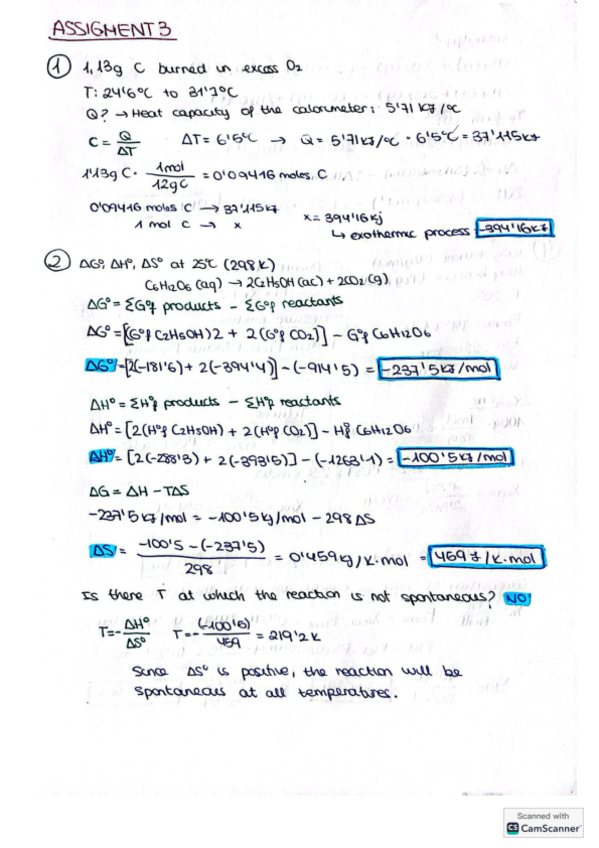 ASSIGMENT 3
① 1,13g C burned in excess O2
T: 24'6ºC to 31'1ºC
Q? → Heat capacity of the calorimeter: 5'71 KJ/ºC
C = Q/ΔT ΔT = 6'5ºC → Q = 5'71 KJ/ºC · 6'5ºC = 37'115KJ
1'13g C · 1mol/12g C = 0'09416 moles C
0'09416 moles C → 37'115KJ
1 mol C → x x = 394'16 Kj
↳ exothermic process: -394'16 KJ
② ΔGº, ΔHº, ΔSº at 25ºC (298K)
C6H12O6 (aq) → 2C2H5OH (ac) + 2CO2 (g)
ΔGº = ΣGºf products - ΣGºf reactants
ΔGº = [(Gºf C2H5OH)2 + 2(Gºf CO2)] - Gºf C6H12O6
ΔGº = [2(-181'6) + 2(-394'4)] - (-914'5) = -237'5 KJ/mol
ΔHº = ΣHºf products - ΣHºf reactants
ΔHº = [2(Hºf C2H5OH) + 2(Hºf CO2)] - Hºf C6H12O6
ΔHº = [2(-288'3) + 2(-393'5)] - (-1263'1) = -100'5 KJ/mol
ΔG = ΔH - TΔS
-237'5 KJ/mol = -100'5 KJ/mol - 298 ΔS
ΔS = -100'5 - (-237'5)/298 = 0'459 KJ/K·mol = 459 J/K·mol
Is there T at which the reaction is not spontaneous? NO!
T = -ΔHº/ΔSº T = -(-100'6)/459 = 219'2 K
Since ΔSº is positive, the reaction will be
spontaneous at all temperatures.
Scanned with
CS CamScanner